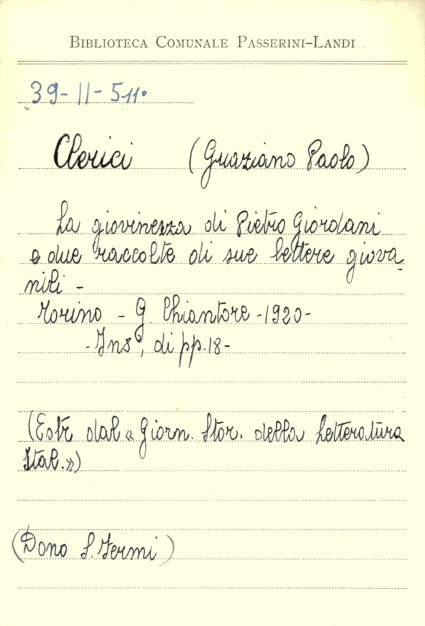 BIBLIOTECA COMUNALE PASSERINI-LANDI
39-II-511°
Clerici (Graziano Paolo)
La giovinezza di Pietro Giordani
e due raccolte di sue lettere giova-
nili -
Torino - G. Chiantore - 1920 -
- In 8°, di pp. 18 -
(Estr. dal « Giorn. Stor. della Letteratura
Ital. »)
(Dono S. Fermi)